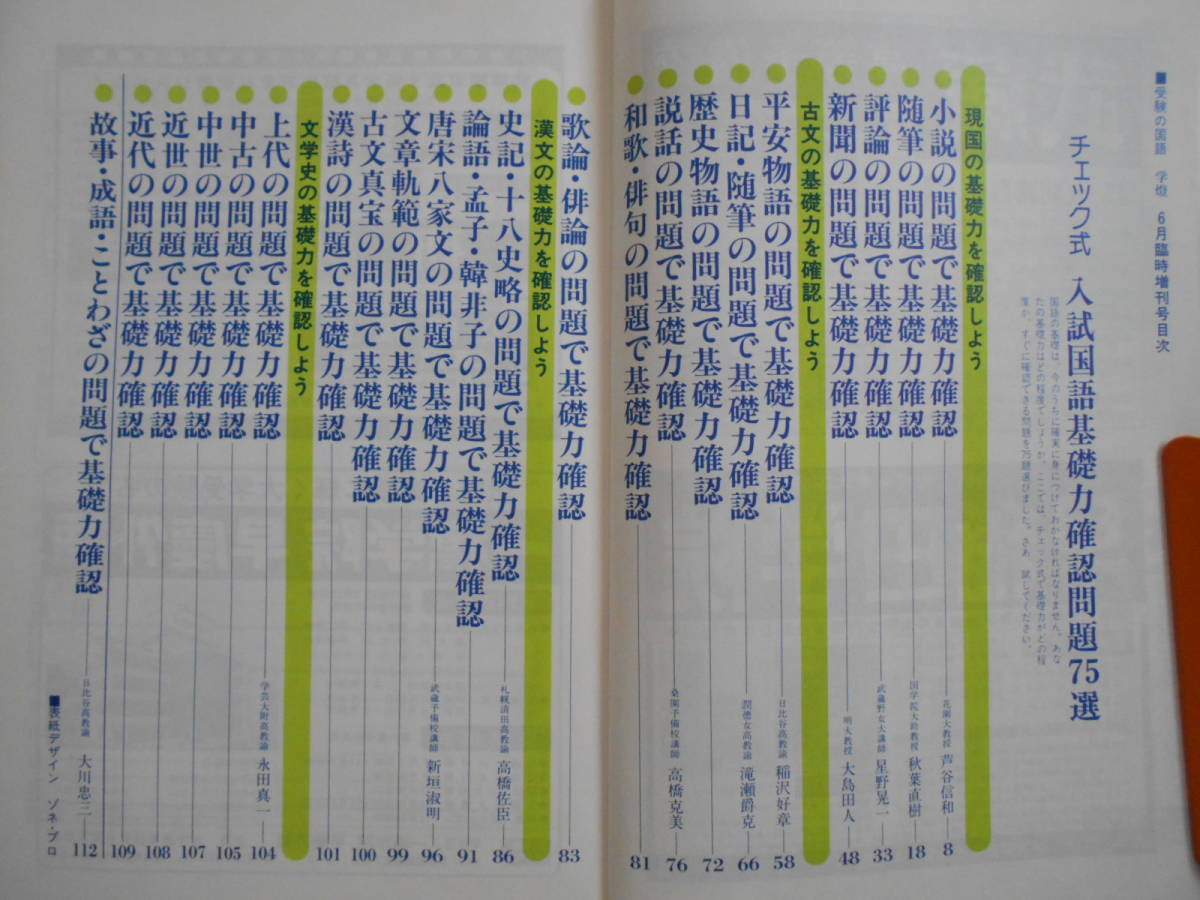 ■受験の国語 学燈 6月臨時増刊号目次
チェック式 入試国語基礎力確認問題75選
国語の基礎は、今のうちに確実に身につけておかなければなりません。あな
たの基礎力はどの程度でしょうか。ここでは、チェック式で基礎力がどの程
度か、すぐに確認できる問題を75題選びました。さあ 試してください。
現国の基礎力を確認しよう
小説の問題で基礎力確認 花園大教授 芦谷信和 8
随筆の問題で基礎力確認 国学院大助教授 秋葉直樹 18
評論の問題で基礎力確認 武蔵野女大講師 星野晃一 33
新聞の問題で基礎力確認 明大教授 大島田人 48
古文の基礎力を確認しよう
平安物語の問題で基礎力確認 日比谷高教諭 稲沢好章 58
日記・随筆の問題で基礎力確認 潤徳女高教諭 滝瀬爵克 66
歴史物語の問題で基礎力確認 72
説話の問題で基礎力確認 桑園予備校講師 高橋克美 76
和歌・俳句の問題で基礎力確認 81
歌論・俳論の問題で基礎力確認 83
漢文の基礎力を確認しよう
史記・十八史略の問題で基礎力確認 札幌清田高教諭 高橋佐臣 86
論語・孟子・韓非子の問題で基礎力確認 91
唐宋八家文の問題で基礎力確認 武蔵予備校講師 新垣淑明 96
文章軌範の問題で基礎力確認 99
古文真宝の問題で基礎力確認 100
漢詩の問題で基礎力確認 101
文学史の基礎力を確認しよう
上代の問題で基礎力確認 学芸大附高教諭 永田真一 104
中古の問題で基礎力確認 105
中世の問題で基礎力確認 107
近世の問題で基礎力確認 108
近代の問題で基礎力確認 109
故事・成語・ことわざの問題で基礎力確認 日比谷高教諭 大川忠三 112
■表紙デザイン ゾネ・プロ